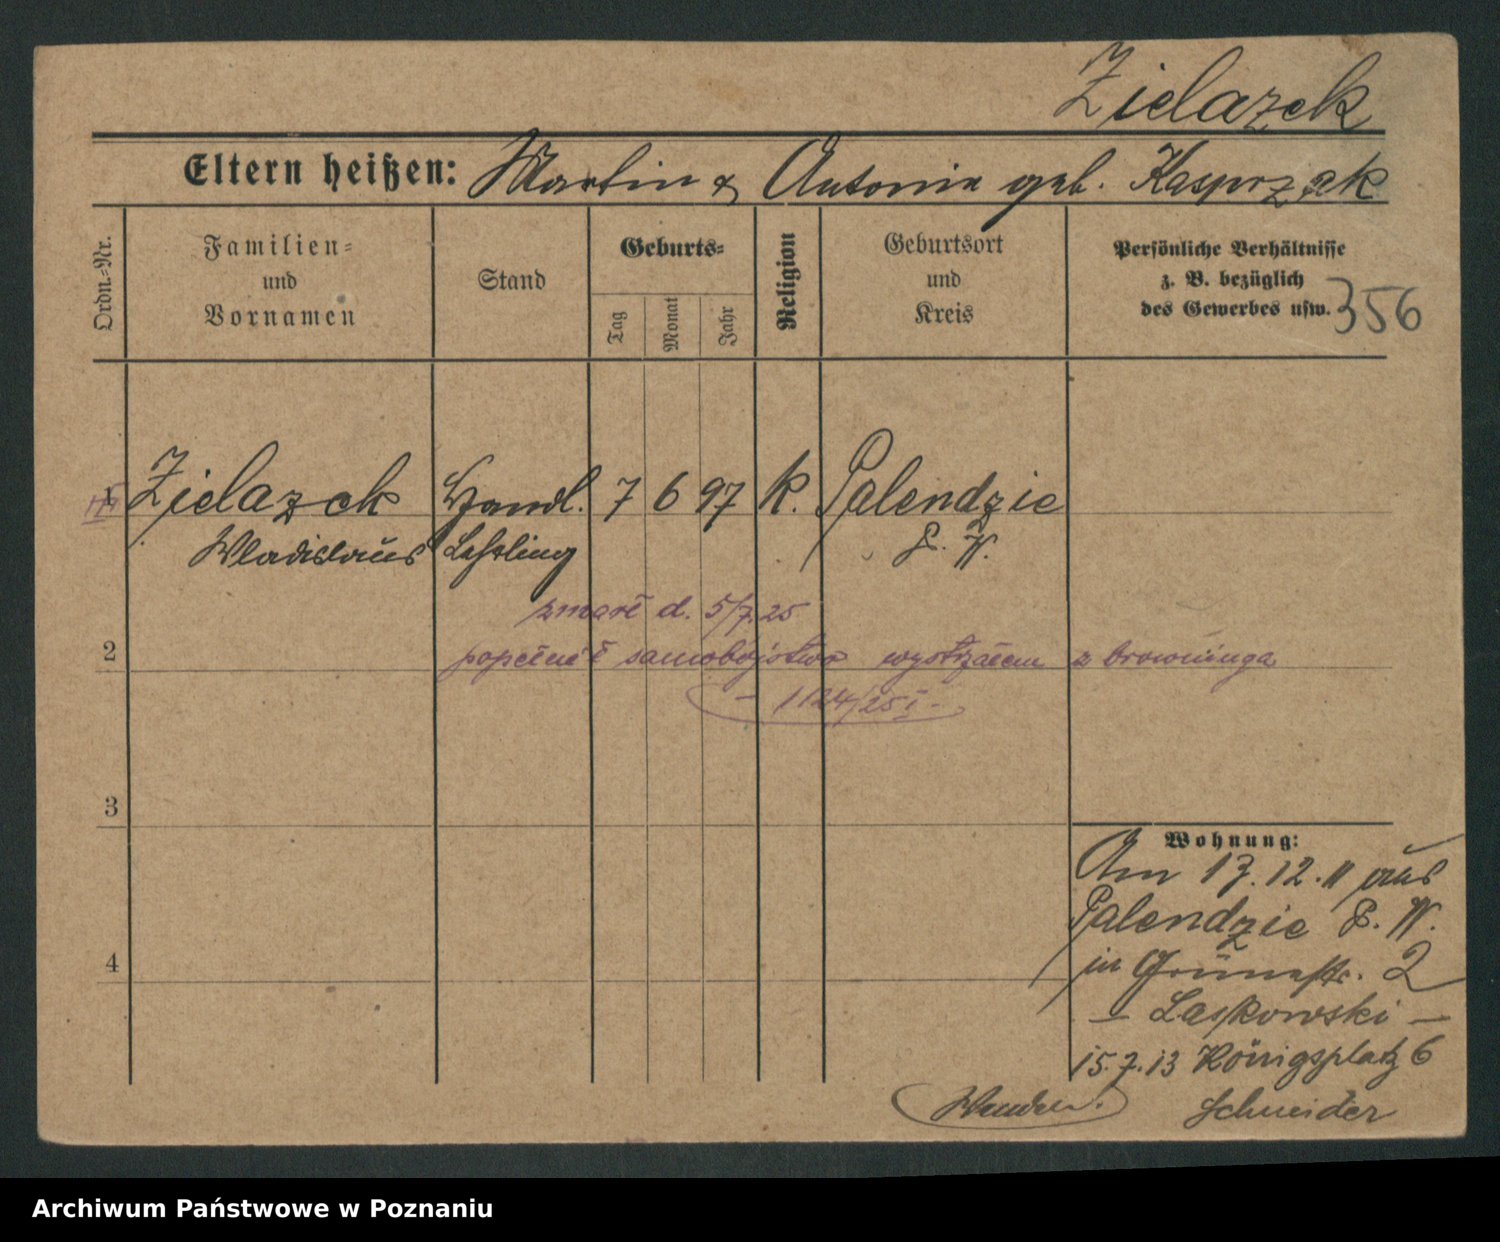 Zielazek
Eltern heißen: Martin & Antonie geb. Kasprzak
Ordn.-Nr.
Familien-
und
Vornamen
Stand
Geburts-
Tag
Monat
Jahr
Religion
Geburtsort
und
Kreis
Persönliche Verhältnisse
z. B. bezüglich
des Gewerbes usw.
356
1 Zielazek Handl. 7 6 97 K. Palendzie
Wladislaus Lehrling P. W.
zmarł d. 5/7.25
2 popełnił samobójstwo wystrzałem z browninga
– 1124/25 I –
3
Wohnung:
Am 17.12.11 aus
Palendzie P. W.
4
in Grünestr. 2
– Laskowski –
15.7.13 Königsplatz 6
Schneider
Wenden.
Archiwum Państwowe w Poznaniu